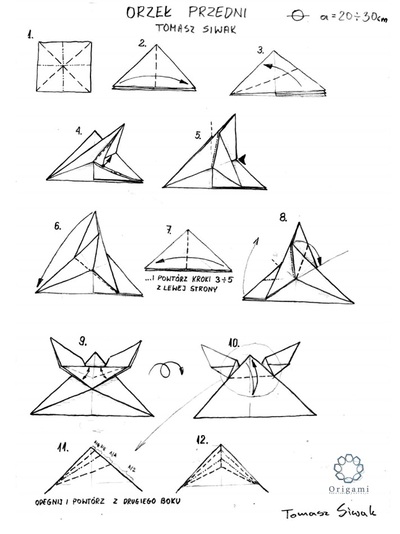 ORZEŁ PRZEDNI
TOMASZ SIWAK
a = 20÷30cm
1.
2.
3.
4.
5.
6.
7.
...I POWTÓRZ KROKI 3÷5
Z LEWEJ STRONY
8.
1
9.
10.
11.
1/4
1/2
12.
ODEGNIJ I POWTÓRZ Z DRUGIEGO BOKU
Origami
Tomasz Siwak